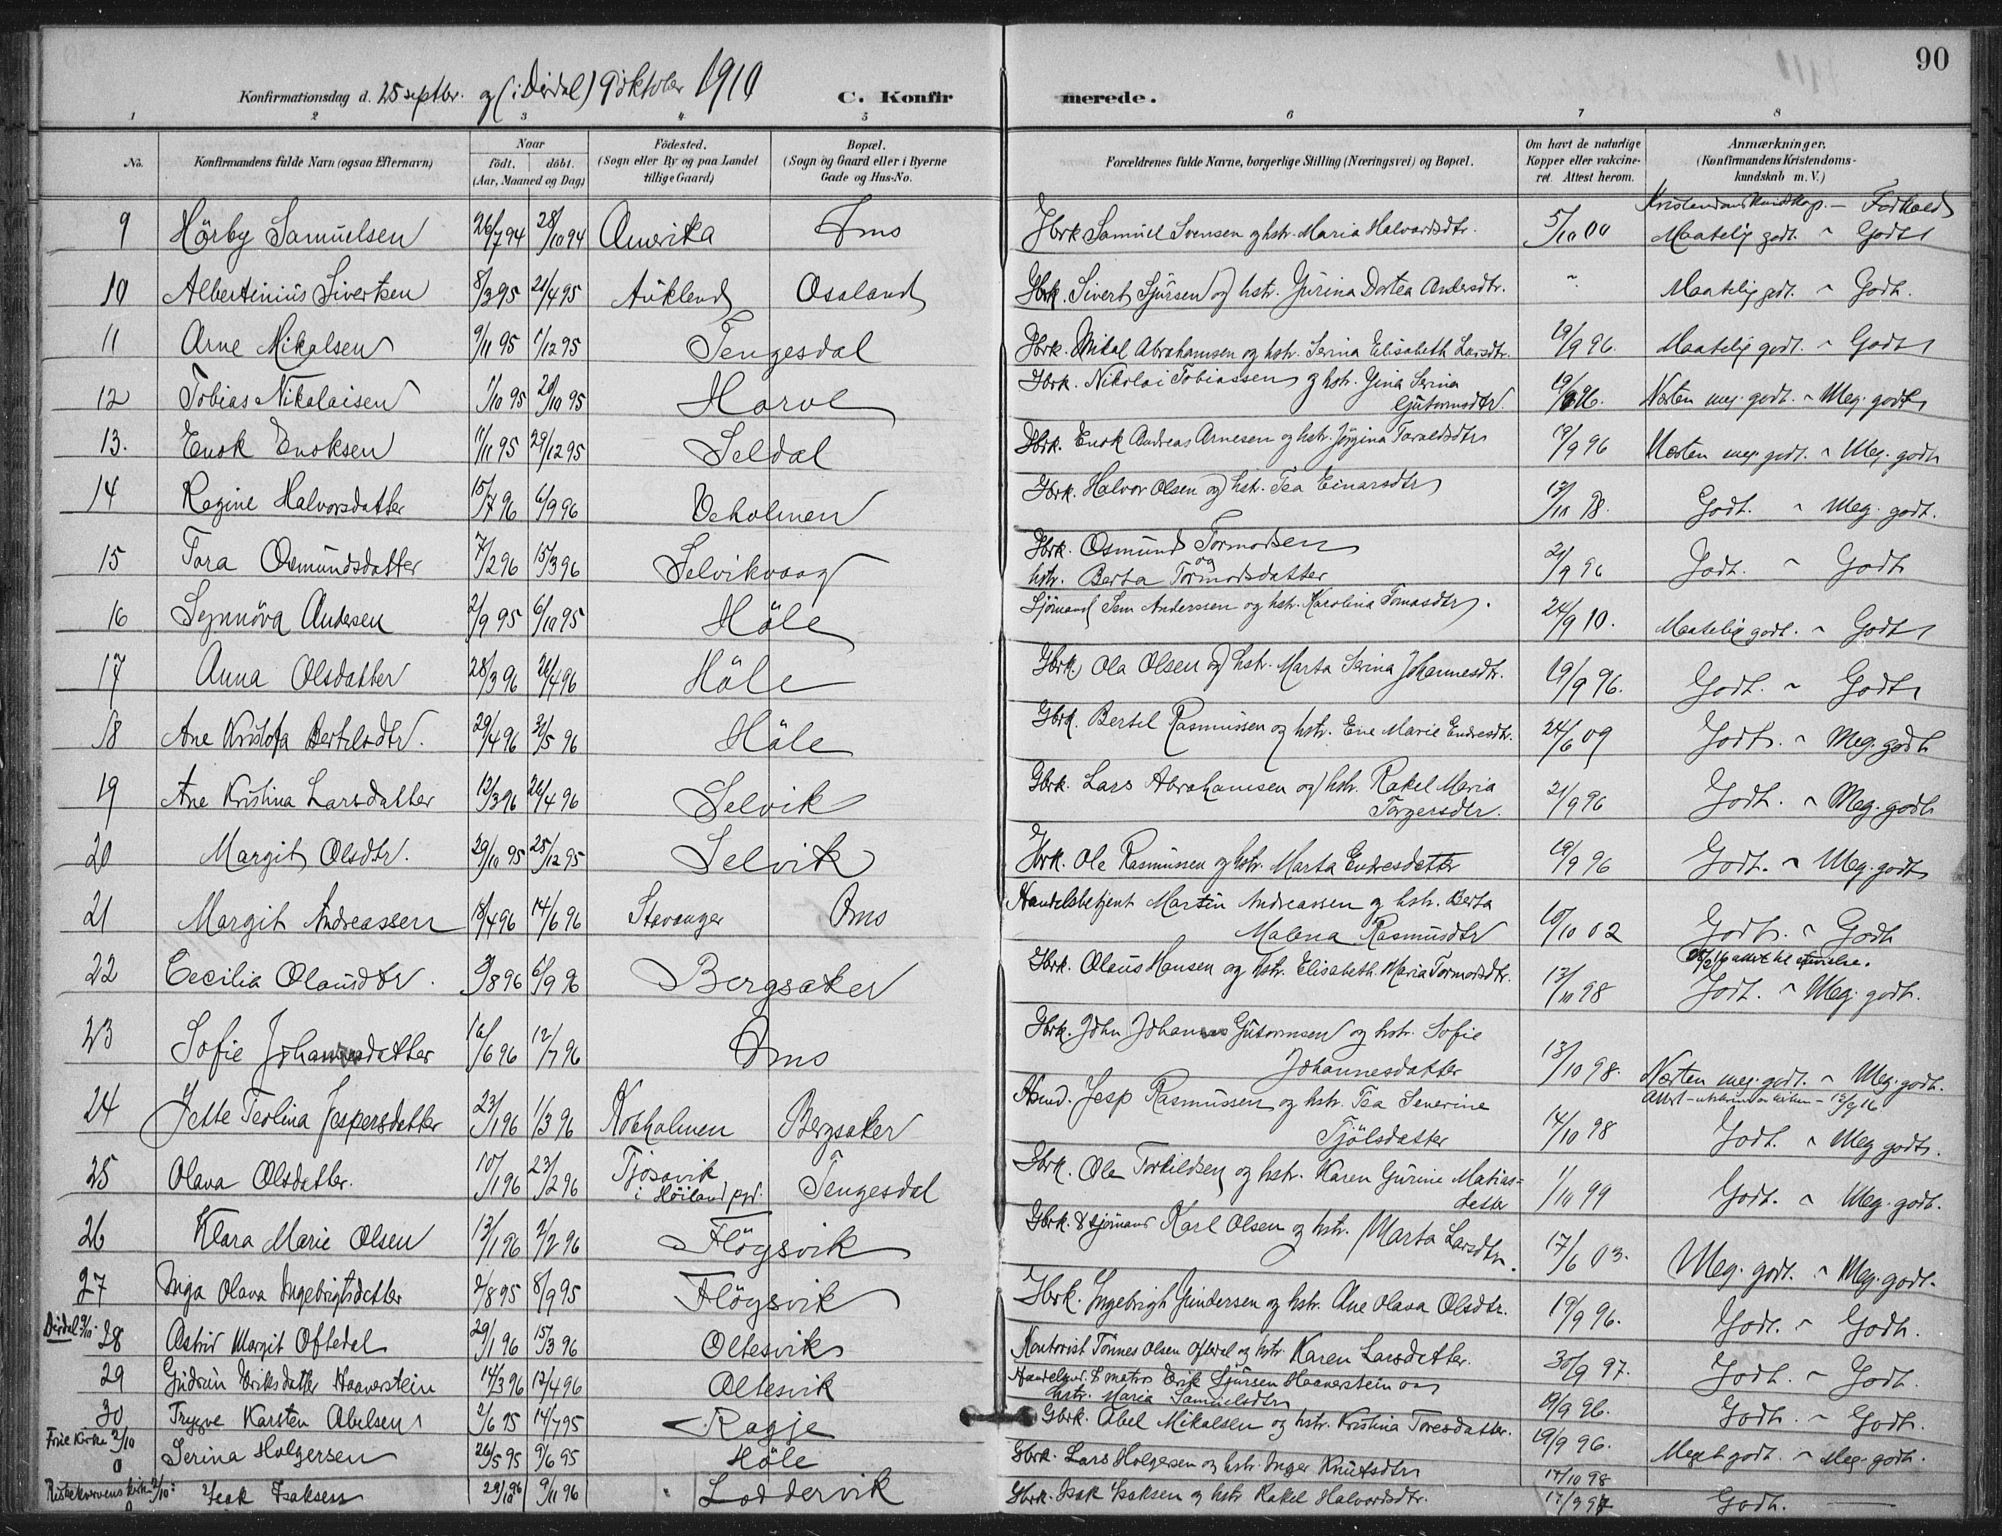 90
Konfirmationsdag d. 25 septbr. og (i Dirdal) 9 oktober 1910 C. Konfirmerede.
1 2 3 4 5 6 7 8
No. Konfirmandens fulde Navn (ogsaa Efternavn) Naar födt. döbt. (Aar, Maaned og Dag) Födested. (Sogn eller By og paa Landet tillige Gaard) Bopæl. (Sogn og Gaard eller i Byerne Gade og Hus-No. Forældrenes fulde Navne, borgerlige Stilling (Næringsvei) og Bopæl. Om havt de naturlige Kopper eller vakcineret. Attest herom. Anmærkninger. (Konfirmandens Kristendomskundskab m. V.)
Kristendomskundskap. — Forhold
9 Hörby Samuelsen 26/7 94 28/10 94 Amerika Ims Gbrk Samuel Svensen og hstr. Maria Halvardsdtr. 5/10 00 Maatelig godt. " Godt
10 Albertinius Sivertsen 8/3 95 21/4 95 Aukland Osaland Gbrk. Sivert Sjursen og hstr. Gurina Dortea Andersdtr. " Maatelig godt. " Godt.
11 Arne Mikalsen 9/11 95 1/12 95 Tengesdal Gbrk. Mikal Abrahamsen og hstr. Serina Elisabeth Larsdtr. 19/9 96. Maatelig godt. " Godt
12 Tobias Nikolaisen 1/10 95 20/10 95 Horve Gbrk. Nikolai Tobiassen og hstr. Gina Serina Gutormsdtr. 19/9 96. Næsten meg. godt. " Meg. godt
13. Enok Enoksen 11/11 95 29/12 95 Seldal Gbrk. Enok Andreas Arnesen og hstr. Jörgina Taraldsdtr 19/9 96 Næsten meg. godt. " Meg. godt
14 Regine Halvorsdatter 15/7 96 6/9 96 Ueholmen Gbrk. Halvor Olsen og hstr. Tea Einarsdtr 13/10 98. Godt. " Meg. godt.
15 Tora Osmundsdatter 7/2 96 15/3 96 Selvikvaag Gbrk. Osmund Tormodsen og hstr. Berta Tormodsdatter 21/9 96 Godt. " Godt
16 Synnöva Andersen 2/9 95 6/10 95 Höle Sjömand Sem Anderssen og hstr. Karolina Tomasdtr. 24/9 10. Maatelig godt. " Godt
17 Anna Olsdatter 28/3 96 26/4 96 Höle Gbrk Ola Olsen og hstr. Marta Serina Johannesdtr. 19/9 96. Godt. " Godt
18 Ane Kristofa Bertelsdtr. 29/4 96 31/5 96 Höle Gbrk. Bertel Rasmussen og hstr. Ene Marie Endresdtr. 24/6 09 Godt. " Meg. godt
19 Ane Kristina Larsdatter 12/3 96 26/4 96 Selvik Gbrk. Lars Abrahamsen og hstr. Rakel Maria Torgersdtr. 21/9 96 Godt. " Meg. godt
20 Margit Olsdtr. 29/10 95 25/12 95 Selvik Gbrk. Ole Rasmussen og hstr. Marta Endresdatter 19/9 96 Godt. " Meg. godt
21 Margit Andreassen 18/4 96 14/6 96 Stavanger Ims Handelsbetjent Martin Andreassen og hstr. Berta Malena Rasmusdtr 10/10 02 Godt. " Godt
22 Cecilia Olausdtr. 9/8 96 6/9 96 Bergsaker Gbrk. Olaus Hansen og hstr. Elisabeth Maria Tormodsdtr. 13/10 98 Godt. " Meg. godt.
23 Sofie Johannesdatter 16/6 96 12/7 96 Ims Gbrk. John Johannes Gutormsen og hstr. Sofie Johannesdatter 13/10 98. Næsten meg. godt. " Meg. godt.
24 Jette Teolina Jespersdatter 23/1 96 1/3 96 Kobholmen Bergsaker Hsmd. Jesp Rasmussen og hstr. Tea Severine Tjölsdatter 14/10 98 Godt. " Meg godt.
25 Olava Olsdatter. 10/1 96 23/2 96 Tjösavik i Höiland pgd. Tengesdal Gbrk. Ole Torkildsen og hstr. Karen Gurine Matiasdatter 1/10 99 Godt. " Meg. godt.
26 Klara Marie Olsen 13/1 96 2/2 96 Flögsvik Gbrk. & sjömand Karl Olsen og hstr. Marta Larsdtr. 17/6 03. Meg. godt. " Meg. godt.
27 Inga Olava Ingebrigtsdatter 2/8 95 8/9 95 Flögsvik Gbrk. Ingebrigt Gundersen og hstr. Ane Olava Olsdtr. 19/9 96. Godt. " Godt.
Dirdal 9/10. 28 Astrid Margit Oftedal 29/1 96 15/3 96 Oltesvik Kontorist Tönnes Olsen Oftedal og hstr. Karen Larsdatter. 30/9 97. Godt. " Godt.
29 Gudrun Eriksdatter Haaverstein 14/3 96 12/4 96 Oltesvik Handelsmd. & matros Erik Sjursen Haaverstein og hstr. Maria Samuelsdtr 19/9 96. Godt. " Godt.
30 Trygve Karsten Abelsen 2/6 95 14/7 95 Ragje Gbrk. Abel Mikalsen og hstr. Kristina Toresdatter. 19/9 96. Meget godt. " Meg. godt.
Frie Kirke 2/10 0 Serina Holgersen 26/5 95 9/6 95 Höle Gbrk. Lars Holgersen og hstr. Inger Knutsdtr 17/10 98
2/10: 0 Isak Isaksen 29/10 96 9/11 96 Loddervik Gbrk. Isak Isaksen og hstr Rakel Halvordsdtr. 17/9 97 Godt. —